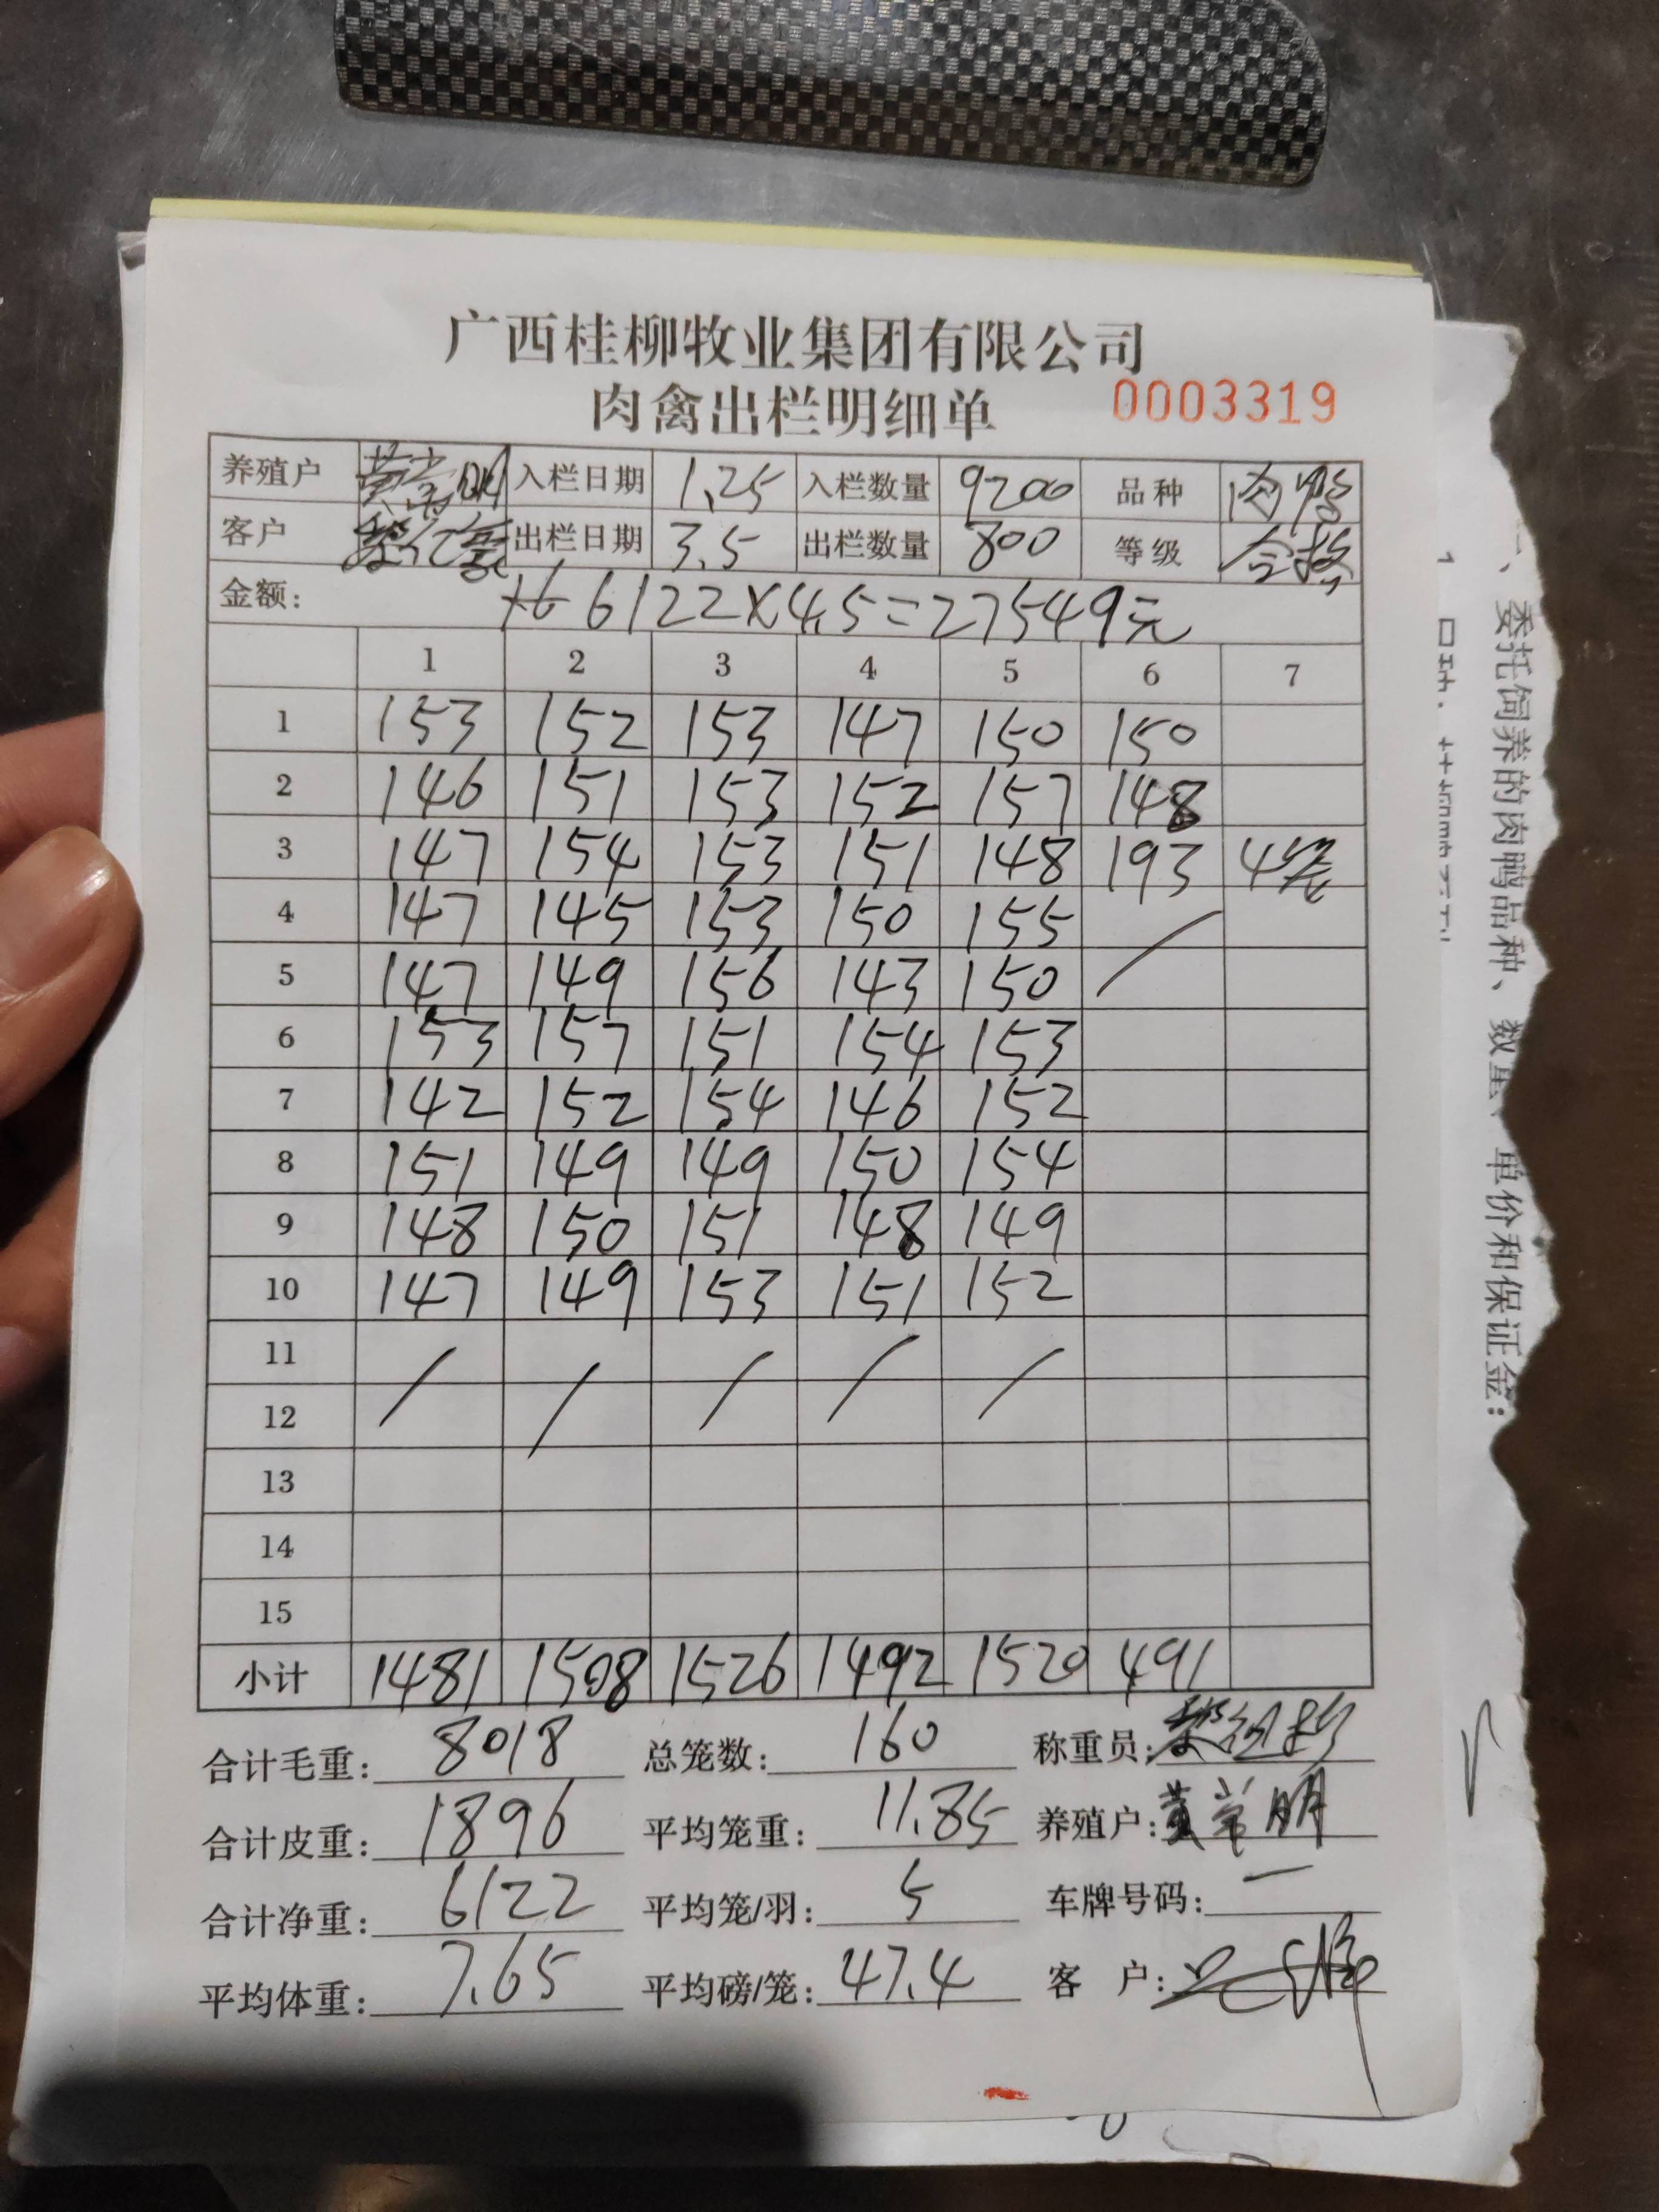 广西桂柳牧业集团有限公司
肉禽出栏明细单 0003319
养殖户 黄常明 入栏日期 1.25 入栏数量 9200 品种 肉鸭
客户 出栏日期 3.5 出栏数量 800 等级 合格
金额: 6122×4.5=27549元
1 2 3 4 5 6 7
1 153 152 153 147 150 150
2 146 151 153 152 157 148
3 147 154 153 151 148 193 4笼
4 147 145 153 150 155 /
5 147 149 156 143 150
6 153 157 151 154 153
7 142 152 154 146 152
8 151 149 149 150 154
9 148 150 151 148 149
10 147 149 153 151 152
11 / / / / /
12
13
14
15
小计 1481 1508 1526 1492 1520 491
合计毛重: 8018 总笼数: 160 称重员:
合计皮重: 1896 平均笼重: 11.85 养殖户: 黄常明
合计净重: 6122 平均笼/羽: 5 车牌号码: 一
平均体重: 7.65 平均磅/笼: 47.4 客 户:
一、委托饲养的肉鸭品种、数量、单价和保证金: